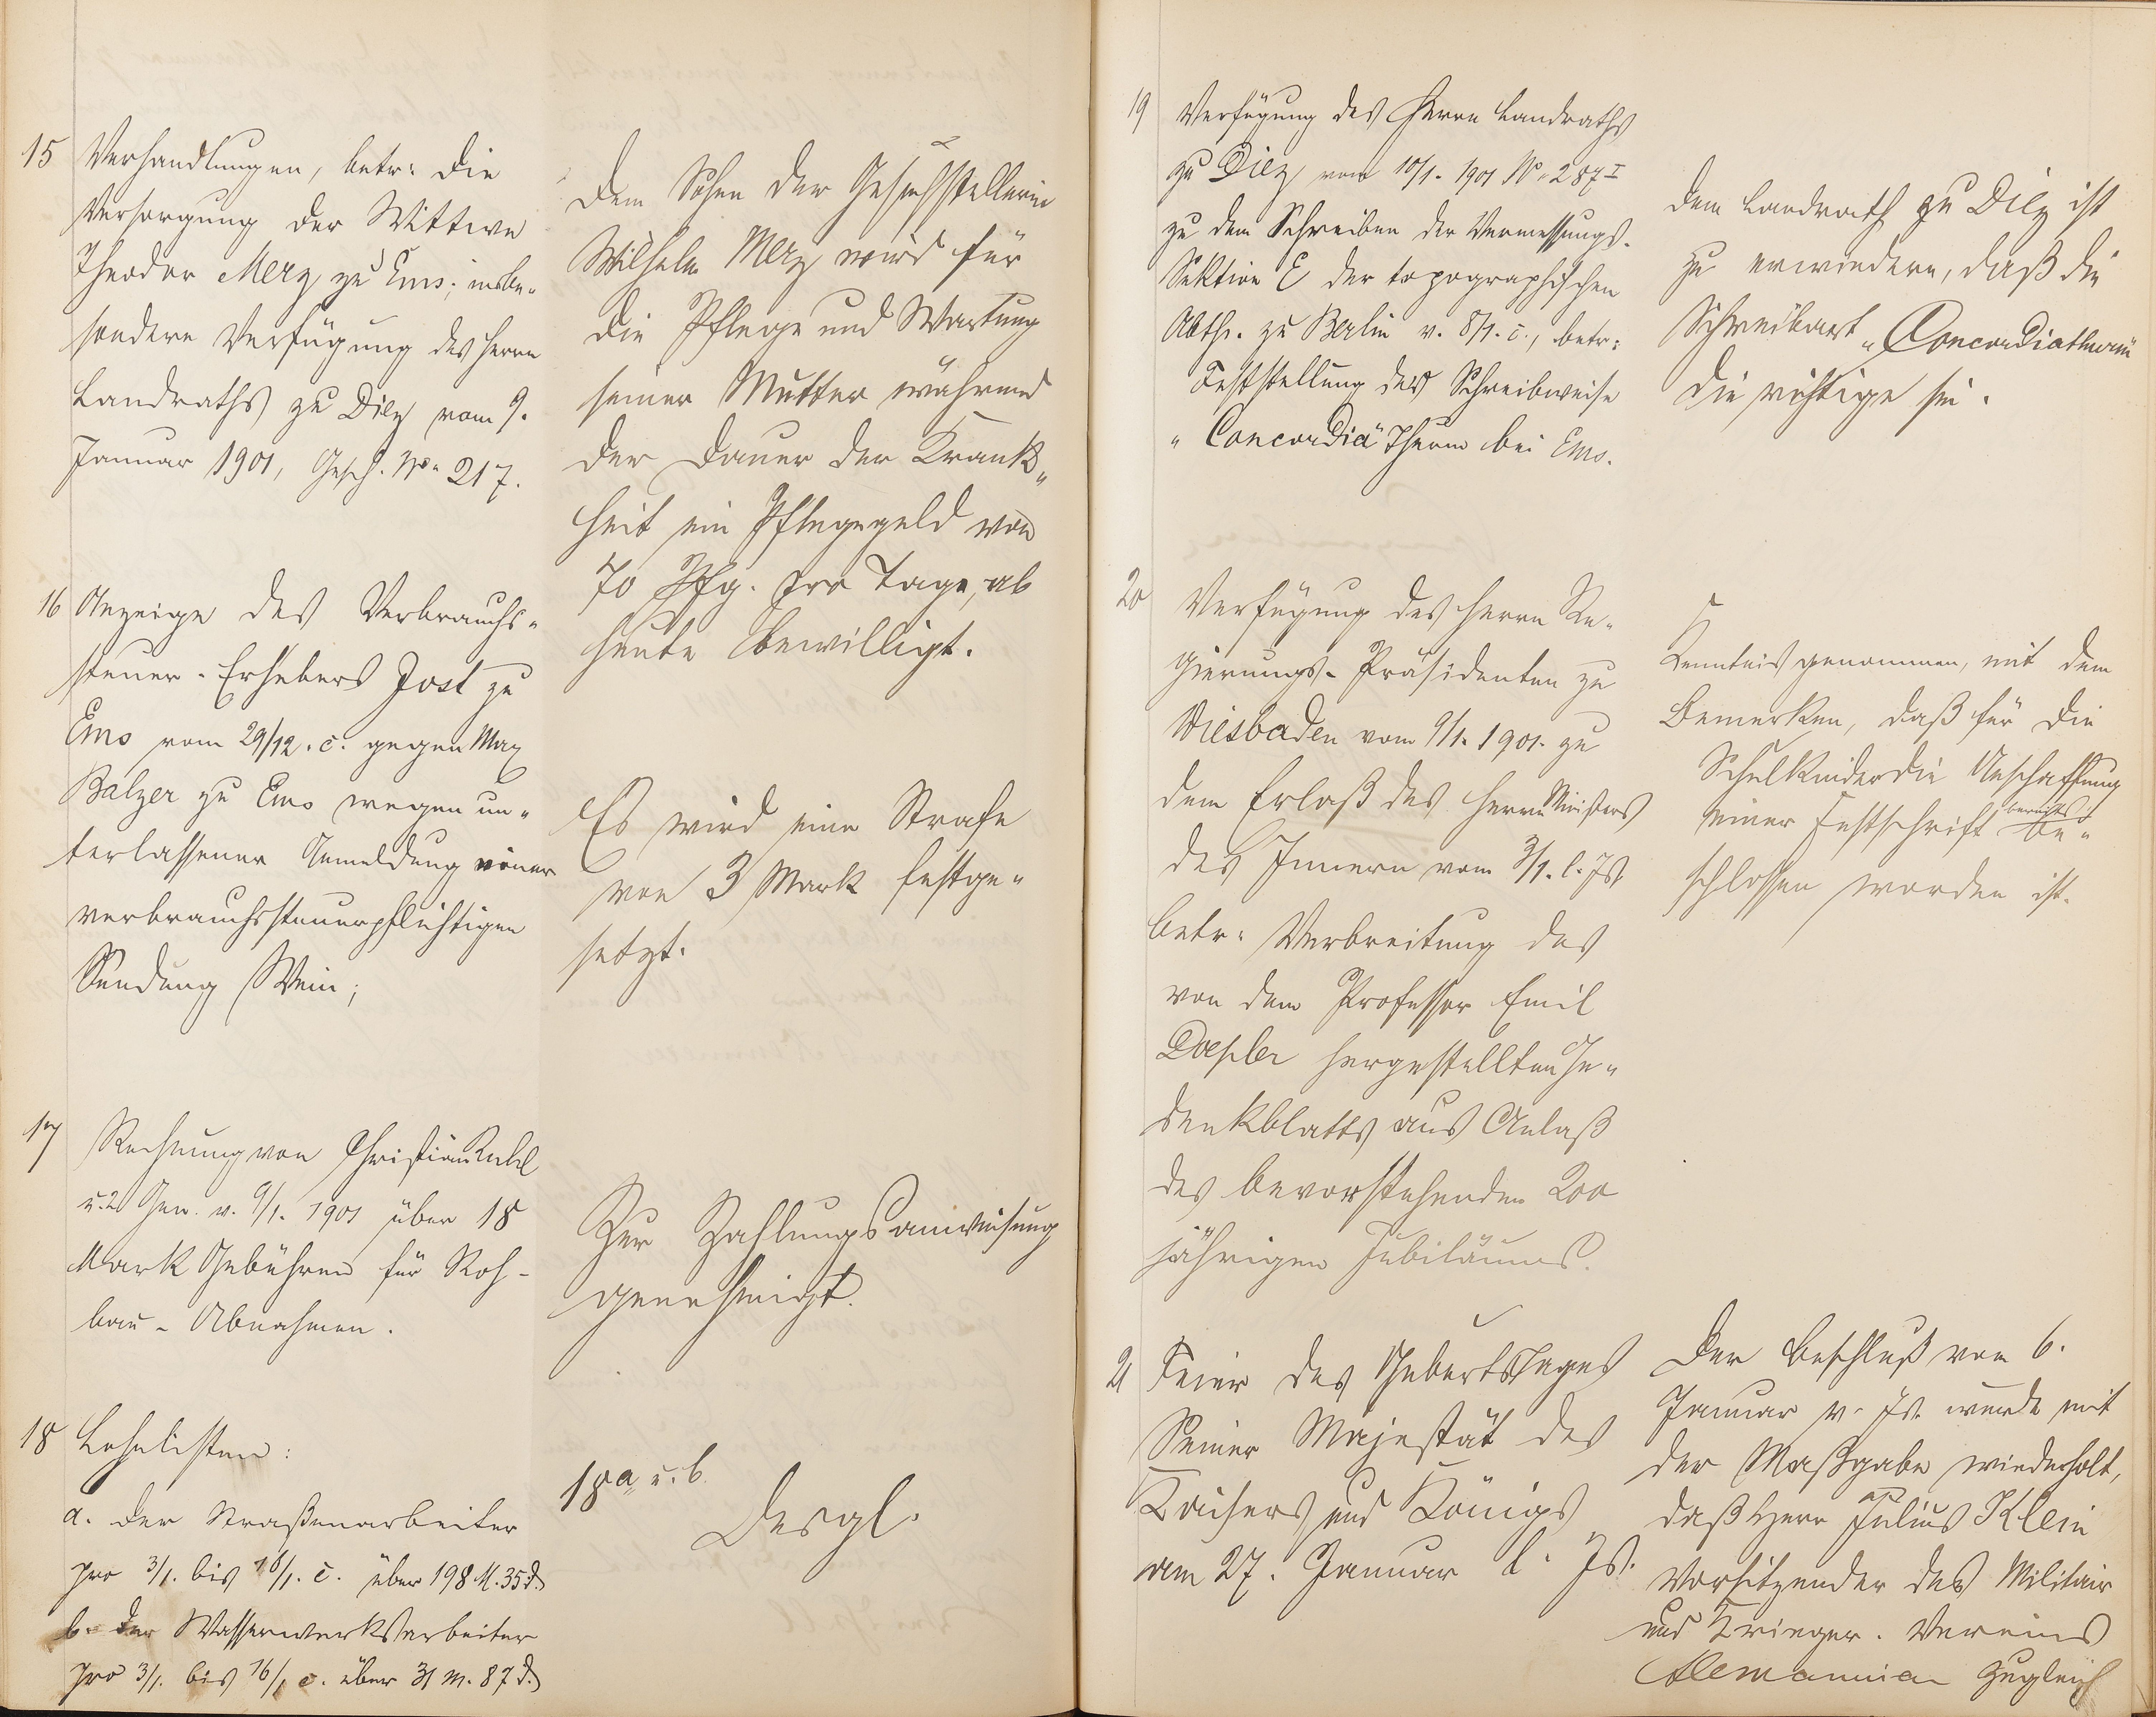 15 Verhandlungen, betr: die
Versorgung der Wittwe
Theodor Merz zu Ems; insbe-
sondere Verfügung des Herrn
Landraths zu Diez vom 9.
Januar 1901, Gesch. No. 217.
Dem Sohn der Gesuchstellerin
Wilhelm Merz wird für
die Pflege und Wartung
seiner Mutter während
der Dauer der Krank-
heit ein Pflegegeld von
70 Pfg. pro Tage, ab
heute bewilligt.
16 Anzeige des Verbrauchs-
steuer-Erhebers Jost zu
Ems vom 29/12. c. gegen Max
Balzer zu Ems wegen un-
terlassener Anmeldung einer
verbrauchssteuerpflichtigen
Sendung Wein;
Es wird eine Strafe
von 3 Mark festge-
setzt.
17 Rechnung von Christian
u. 2 Gen. v. 9/1. 1901 über 18
Mark Gebühren für Roh-
bau-Abnahmen.
Zur Zahlungsanweisung
genehmigt.
18 Lohnlisten:
a. der Straßenarbeiter
pro 3/1. bis 16/1. c. über 198 M. 35 d.
b. der Wasserwerksarbeiter
pro 3/1. bis 16/1 c. über 31 M. 87 d.
18a u. b.
Desgl.
19 Verfügung des Herrn Landraths
zu Diez vom 10/1. 1901 No. 287 I
zu dem Schreiben der Vermessungs-
Sektion E der topographischen
Abth. zu Berlin v. 8/1. c., betr:
Feststellung der Schreibweise
"Concordia" Thurm bei Ems.
Dem Landrath zu Diez ist
zu erwiedern, daß die
Schreibart "Concordiathurm"
die richtige sei.
20 Verfügung des Herrn Re-
gierungs-Präsidenten zu
Wiesbaden vom 9/1. 1901. zu
dem Erlaß des Herrn Ministers
des Innern vom 3/1. l. Js.
betr: Verbreitung des
von dem Professor Emil
Doepler hergestellten Ge-
denkblatts aus Anlaß
des bevorstehenden 200
jährigen Jubiläums.
Kenntnis genommen, mit dem
Bemerken, daß für die
Schulkinder die Anschaffung
einer Festschrift bereits be-
schlossen worden ist.
21 Feier des Geburtstages
Seiner Majestät des
Kaisers und Königs
am 27. Januar l. Js.
Der Beschluß vom 6.
Januar v. Js. wurde mit
der Maßgabe wiederholt,
daß Herr Julius Klein
Vorsitzender des Militair
und Krieger-Vereins
Alemannia zugleich